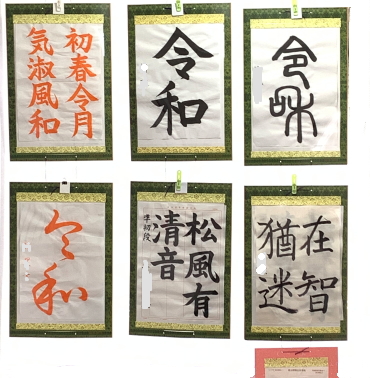 初春令月
気淑風和
令和
令和
令和
松風有
清音
準初段
在智
猶迷